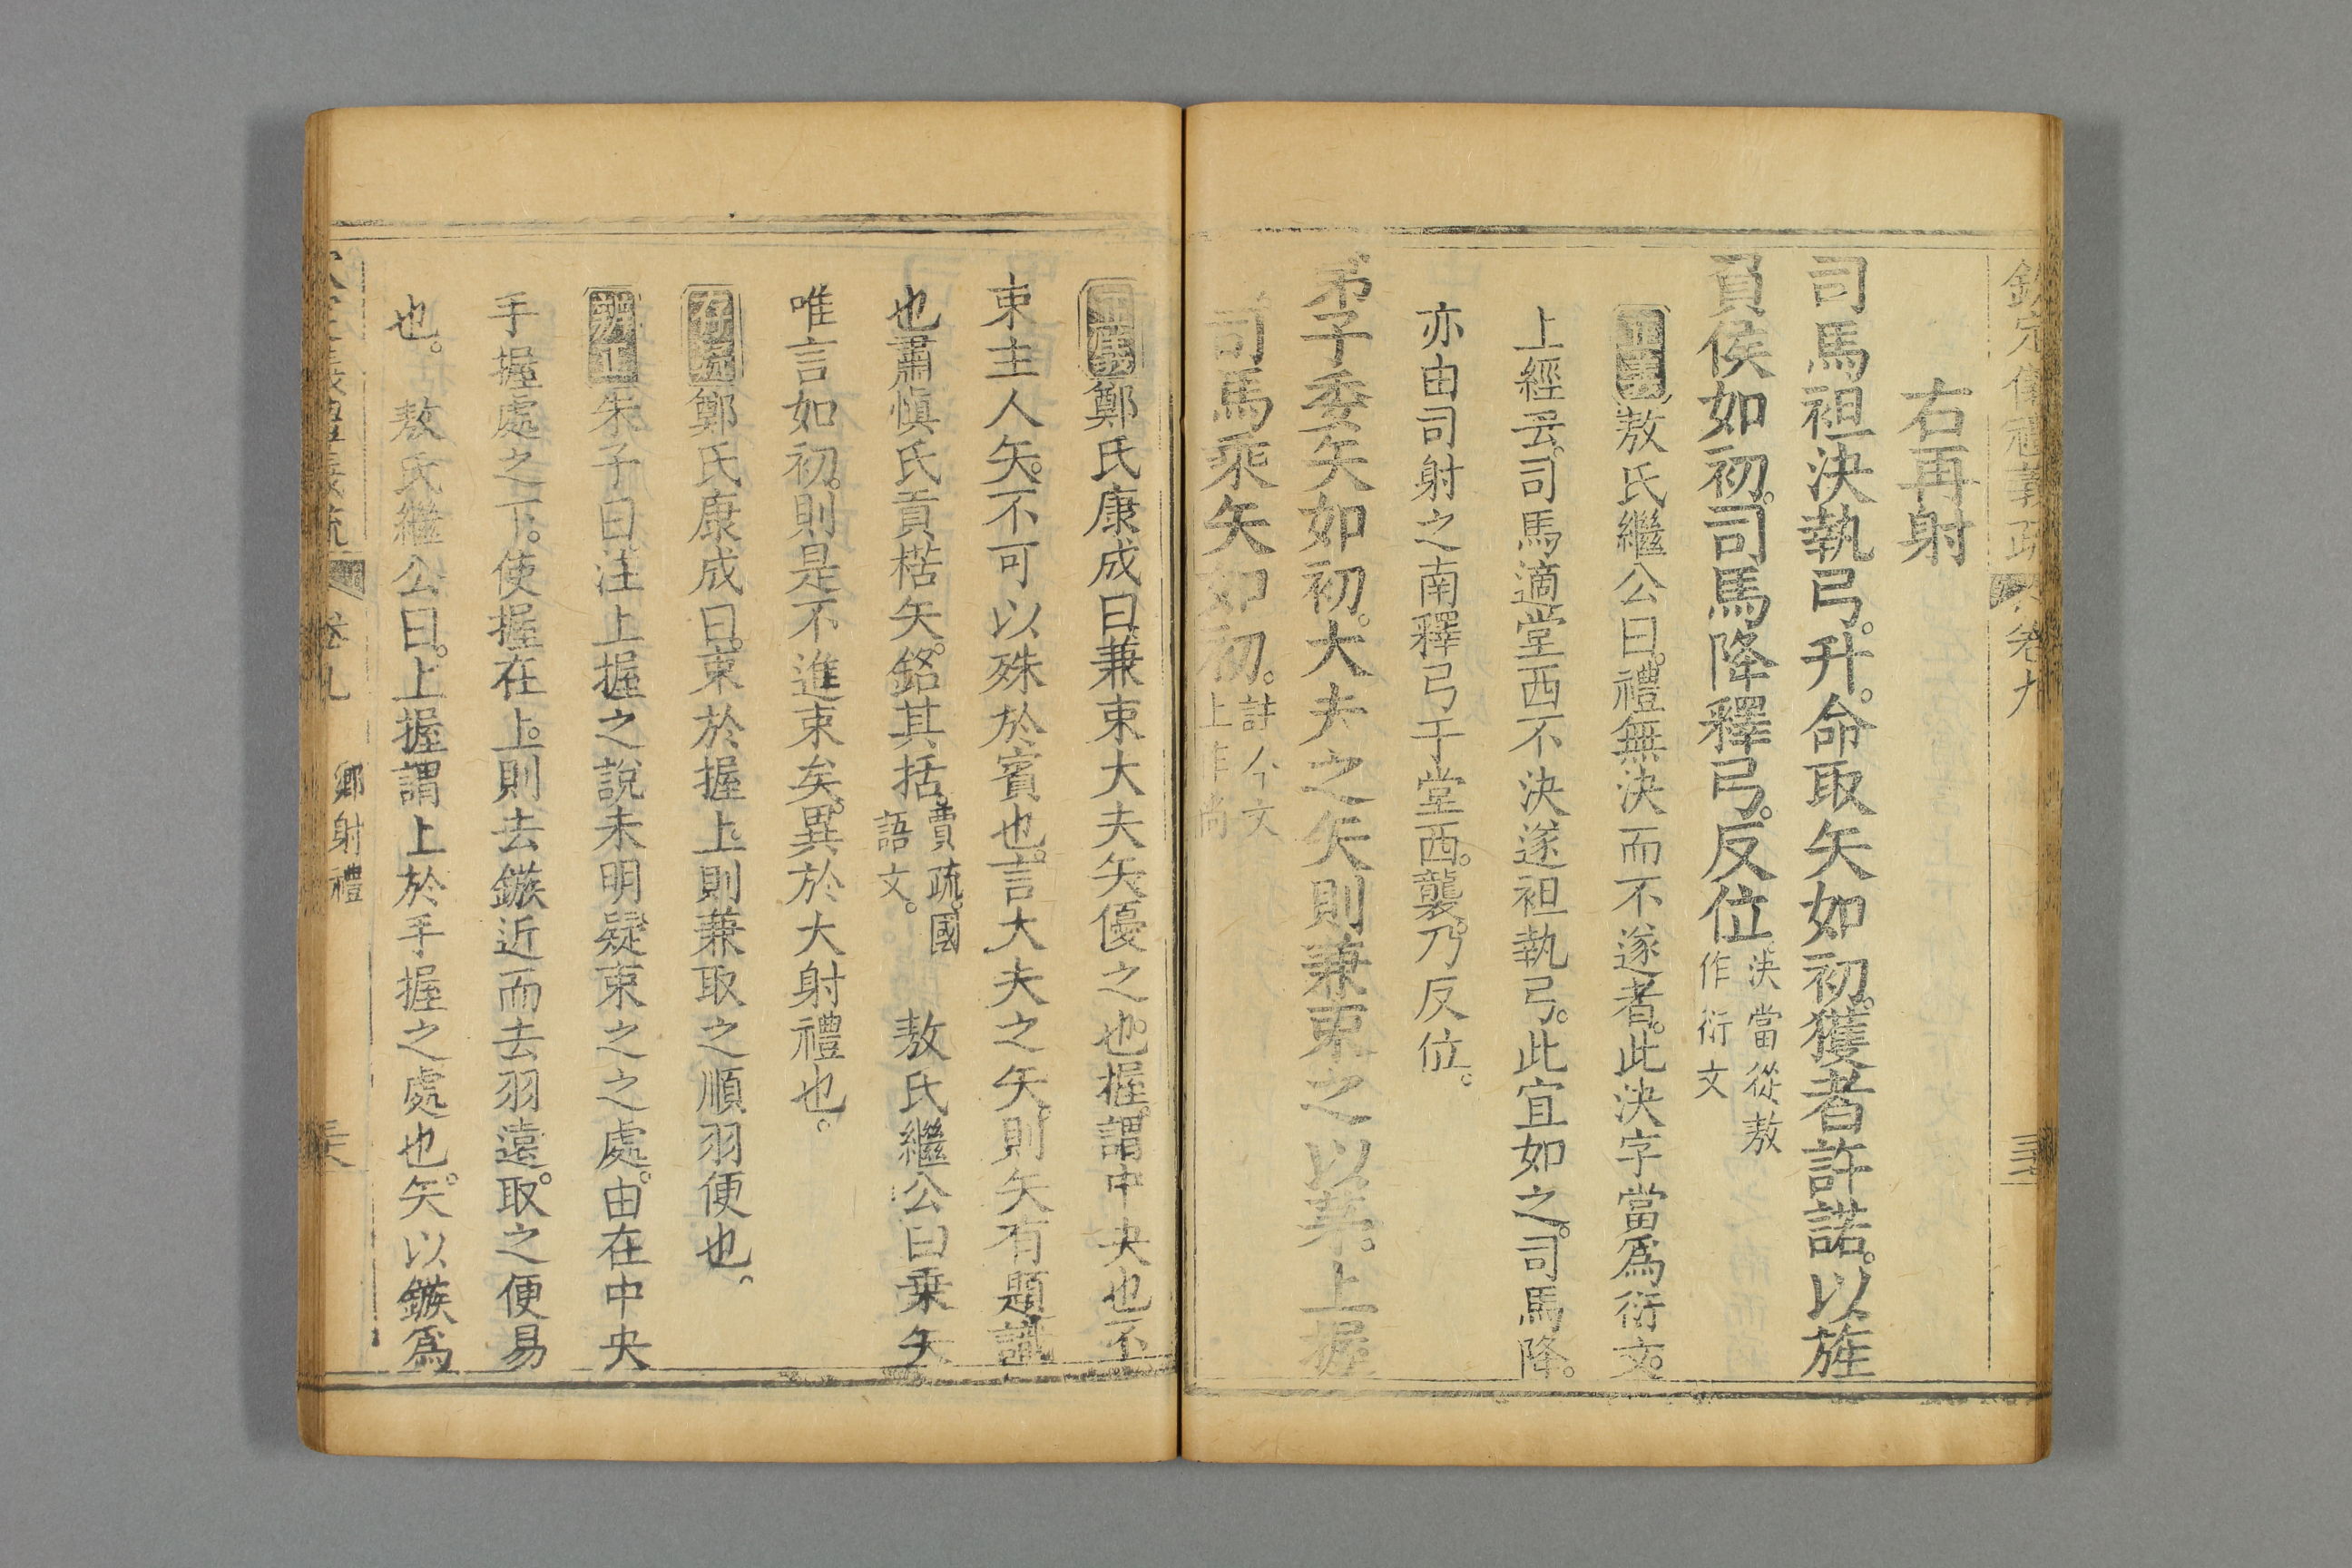 欽定儀禮義疏 卷九
右再射
司馬袒決執弓。升。命取矢如初。獲者許諾。以旌
負侯如初。司馬降釋弓。反位。決當從敖
作衍文
正義敖氏繼公曰。禮無決而不遂者。此決字當爲衍文。
上經云。司馬適堂西不決遂袒執弓。此宜如之。司馬降。
亦由司射之南釋弓于堂西。襲。乃反位。
弟子委矢如初。大夫之矢則兼束之以茅。上握
焉。司馬乘矢如初。註今文
上作尚
正義鄭氏康成曰兼束大夫矢優之也。握。謂中央也不
束主人矢。不可以殊於賓也。言大夫之矢。則矢有題識
也肅愼氏貢楛矢。銘其括賈疏。國
語文。
敖氏繼公曰乘矢
唯言如初。則是不進束矣。異於大射禮也。
存疑鄭氏康成曰。束於握上。則兼取之順羽便也。
辨正朱子曰注上握之說未明疑束之之處。由在中央
手握處之下。使握在上。則去鏃近而去羽遠。取之便易
也。敖氏繼公曰。上握謂上於手握之處也。矢以鏃爲
卷九 鄉射禮